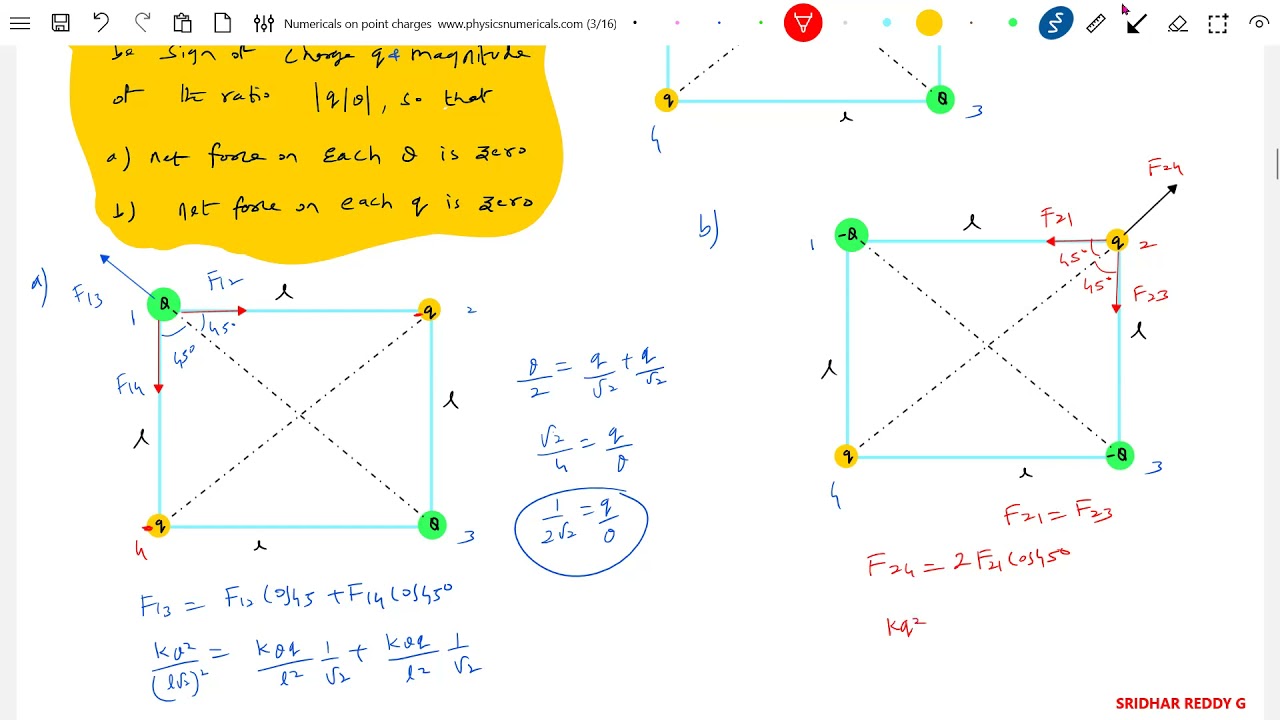 Numericals on point charges www.physicsnumericals.com (3/16)
be sign of charge q & magnitude
of the ratio |q/Q|, so that
a) net force on each Q is zero
b) net force on each q is zero
q
Q
4
l
3
a)
F13
Q
F12
l
q
1
45°
45°
2
F14
l
l
q
Q
4
l
3
F13 = F12 Cos45 + F14 Cos45°
KQ²/(l√2)² = KQq/l² 1/√2 + KQq/l² 1/√2
Q/2 = q/√2 + q/√2
√2/4 = q/Q
1/2√2 = q/Q
b)
F24
-Q
l
F21
q
1
45°
2
45°
F23
l
l
q
-Q
4
l
3
F21 = F23
F24 = 2 F21 Cos45°
Kq²
SRIDHAR REDDY G